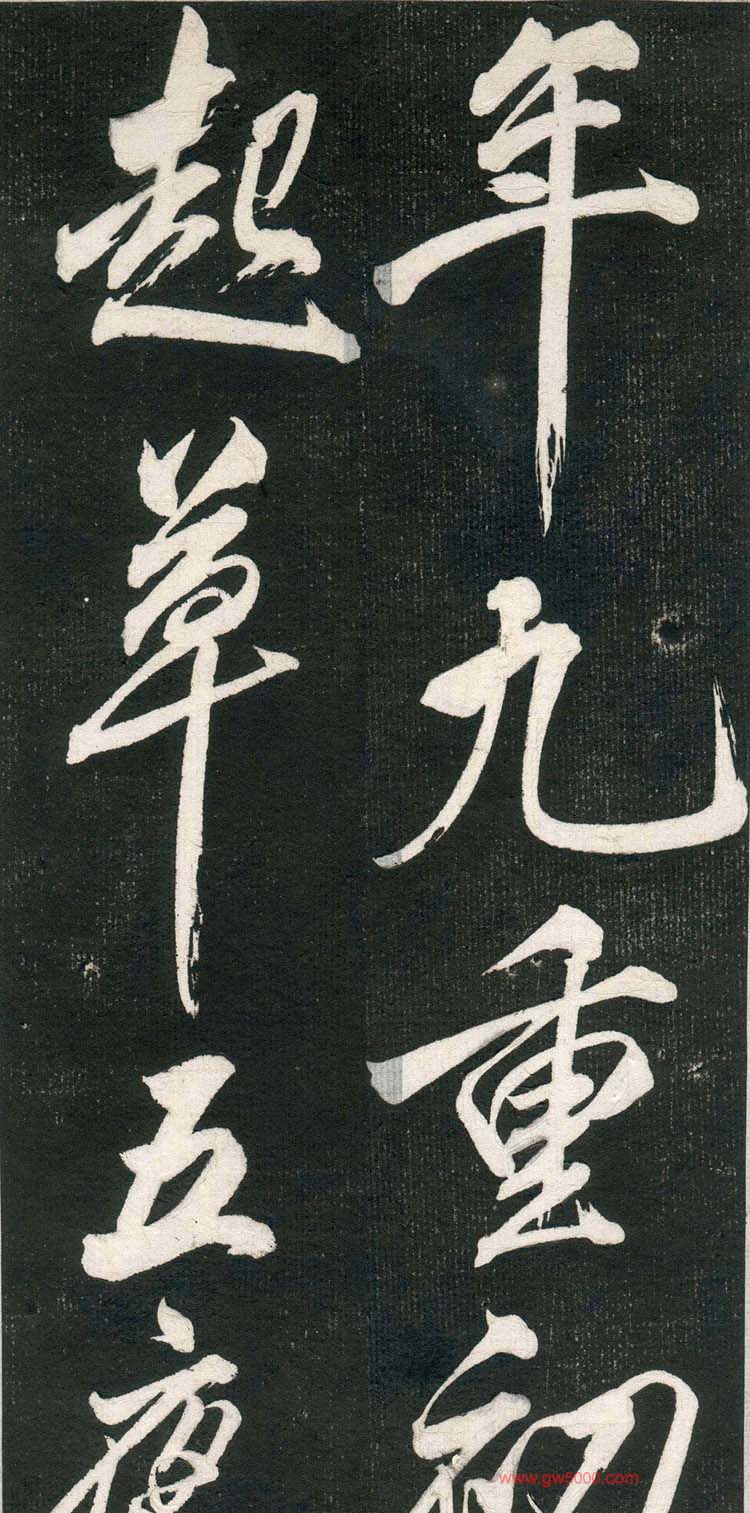 年九重初
起草五夜
www.gw5000.com